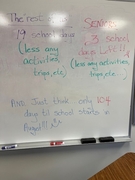 The rest
Seniors
19 school days
3 school
(less any
days Left!!
activities,
(less any
trips, etc.)
activities,
trips, etc.)
And Just think only 104
days til school starts in
August!!!